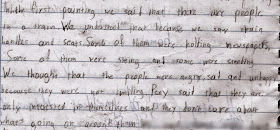 In the first painting we said that there are people
in a train. We inferred that because we saw train
handles and seats. Some of them were holting newspapers
Some of them were siting and some were standing
We thought that the people were angry, sad and unhappy
because they were not smiling. Poey said that they are
only interested in themselves and they don't care about
whats going on around them.